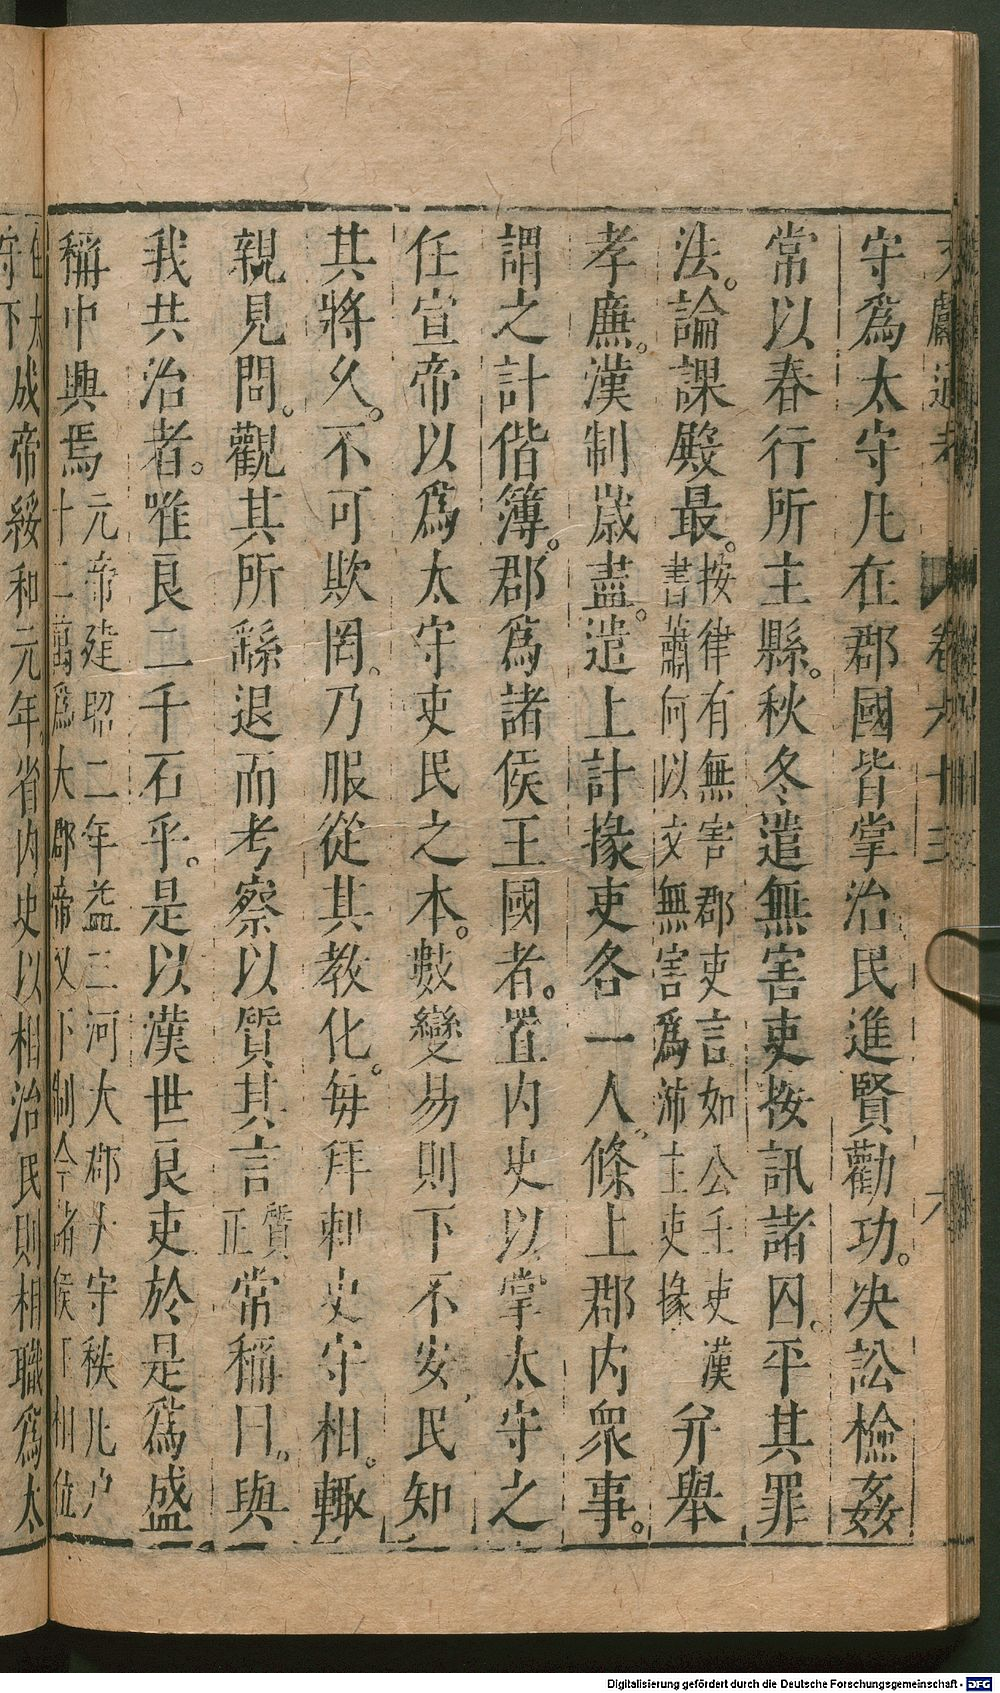 文獻通考 卷六十三 六
守爲太守凡在郡國皆掌治民進賢勸功。決訟檢姦
常以春行所主縣。秋冬遣無害吏按訊諸囚。平其罪
法。論課殿最。按律有無害郡吏言如公壬吏漢
書蕭何以文無害爲沛主吏掾
并舉
孝廉。漢制歲盡。遣上計掾吏各一人。條上郡内衆事。
謂之計偕簿。郡爲諸侯王國者。置内史以掌太守之
任宣帝以爲太守吏民之本。數變易則下不安。民知
其將久。不可欺罔。乃服從其教化。每拜刺史守相。輒
親見問。觀其所繇退而考察以質其言質
正
常稱曰。與
我共治者。唯良二千石乎。是以漢世良吏於是爲盛
稱中興焉元帝建昭二年益三河大郡太守秩凡户
十二萬爲大郡帝又下制令諸侯丁相位
在太
守下
成帝綏和元年省内史以相治民則相職爲太
Digitalisierung gefördert durch die Deutsche Forschungsgemeinschaft - DFG